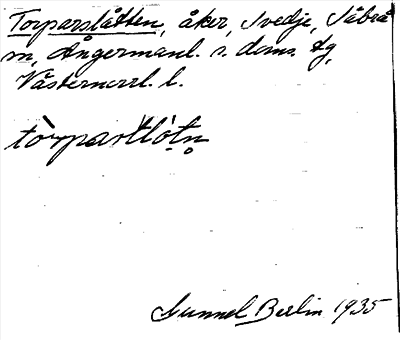 Torparslåtten, åker, Svedje, Säbrå
sn, Ångermanl. s. doms. tg,
Västernorrl. l.
tòrpaṣʹlòtn̥
Gunnel Berlin 1935